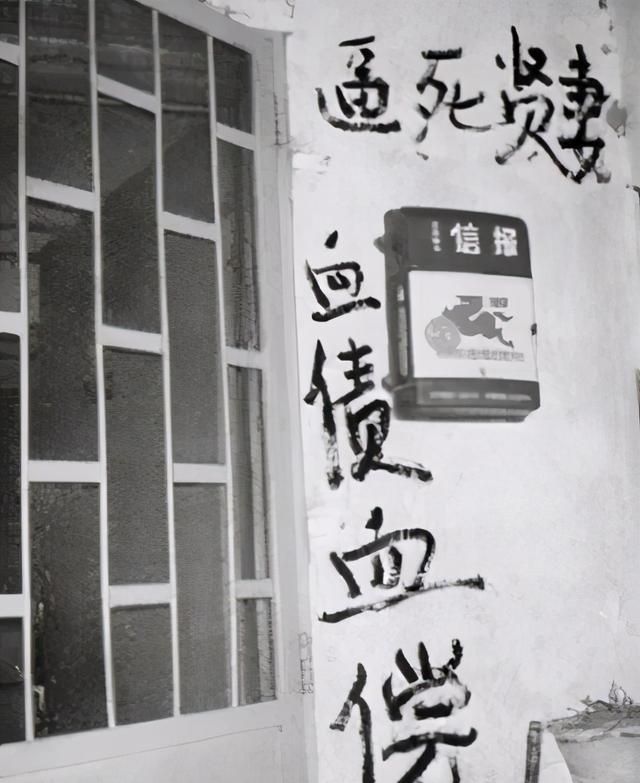 逼死贤妻
信报
血债血偿